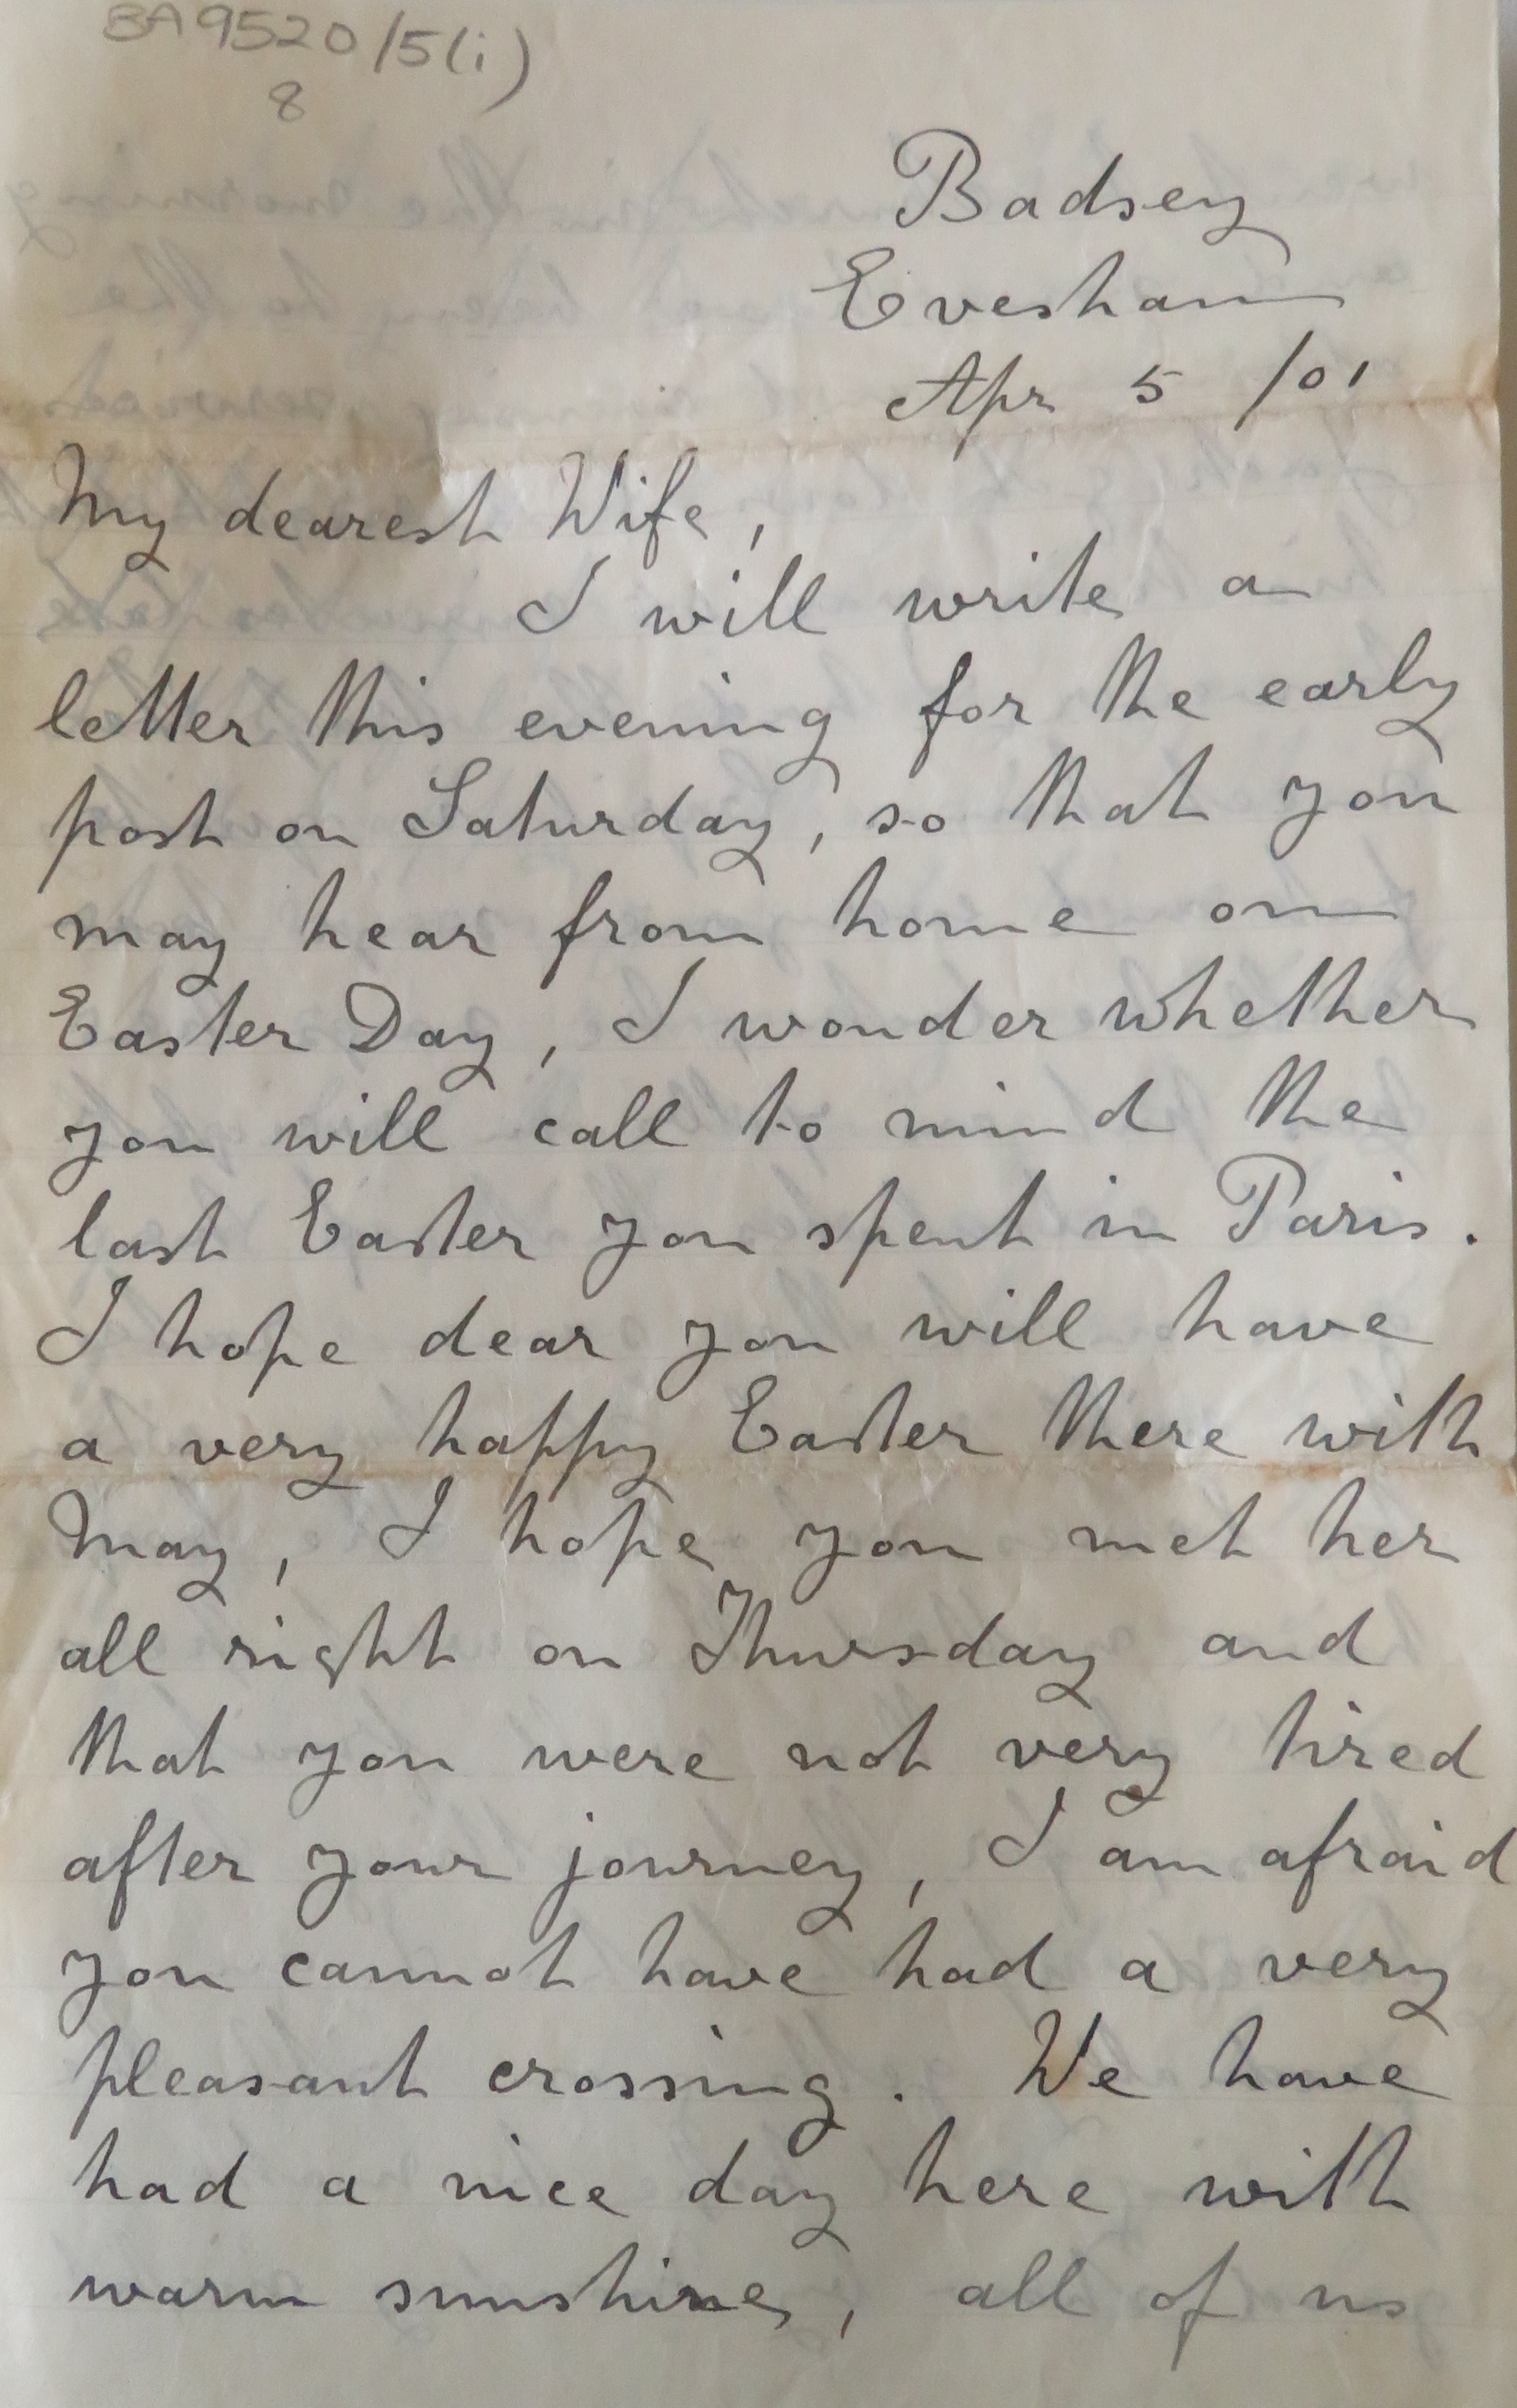 BA9520/5(i)
8
Badsey
Evesham
Apr 5 /01
My dearest Wife,
I will write a
letter this evening for the early
post on Saturday, so that you
may hear from home on
Easter Day, I wonder whether
you will call to mind the
last Easter you spent in Paris.
I hope dear you will have
a very happy Easter there with
May, I hope you met her
all right on Thursday and
that you were not very tired
after your journey, I am afraid
you cannot have had a very
pleasant crossing. We have
had a nice day here with
warm sunshine, all of us